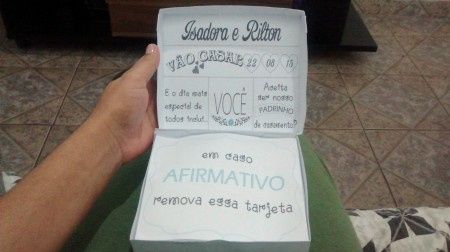 Isadora e Rilton
VÃO CASAR 22 08 15
E o dia mais
especial de
todos inclui...
VOCÊ
Aceita
ser nosso
PADRINHO
de casamento?
em caso
AFIRMATIVO
remova essa tarjeta